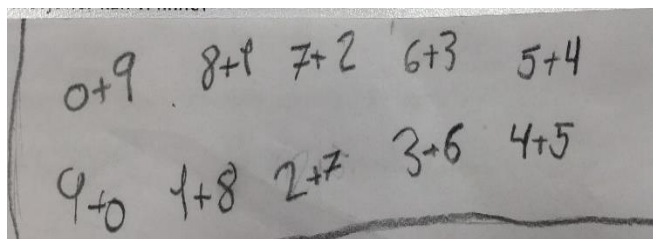 0+9 8+1 7+2 6+3 5+4
9+0 1+8 2+7 3+6 4+5